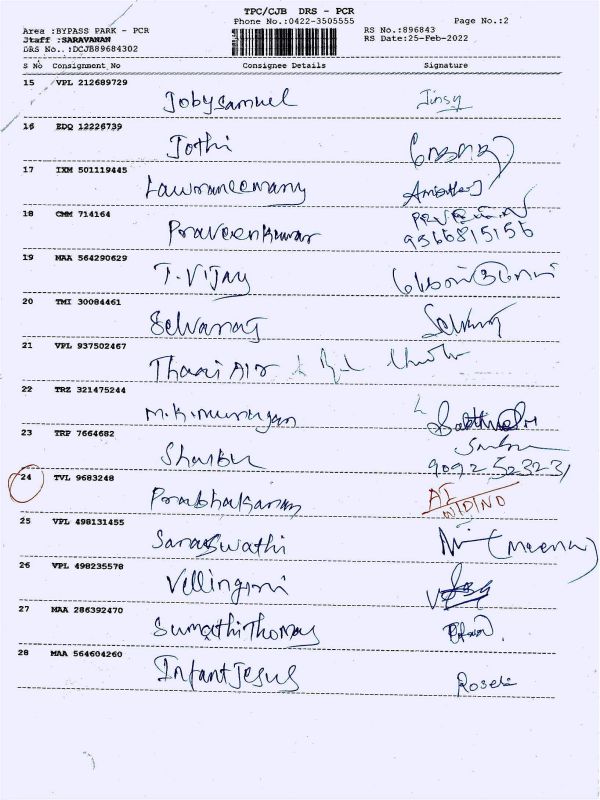 TPC/CJB DRS - PCR
Phone No.:0422-3505555 Page No.:2
Area :BYPASS PARK - PCR RS No.:896843
Staff :SARAVANAN RS Date:25-Feb-2022
DRS No.:DCJB89684302
S No Consignment_No Consignee Details Signature
15 VPL 212689729
Jobysamuel Jinsy
16 EDQ 12226739
Jothi
17 IXM 501119445
Lawrancemany
18 CMM 714164
Praveenkumar 9566815156
19 MAA 564290629
T.Vijay
20 TMI 30084461
Selvaraj
21 VPL 937502467
Thaai Air
22 TRZ 321475244
M.K.murugan
23 TRP 7664682
9092523231
24 TVL 9683248
Prabhakaran
25 VPL 498131455
Saraswathi (Meena)
26 VPL 498235578
Vellingiri
27 MAA 286392470
SumathiThomas
28 MAA 564604260
Infant Jesus